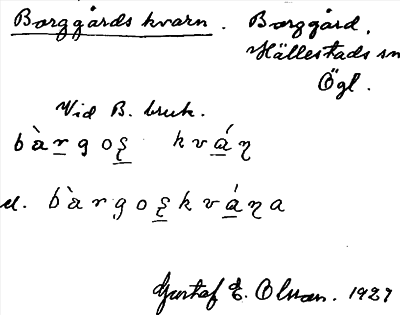 Borggårds kvarn. Borggård,
Hällestads sn
Ögl.
Vid B. bruk.
bàrgoʂ kváɳ
el. bàrgoʂkváɳa
Gustaf E. Olsson. 1927